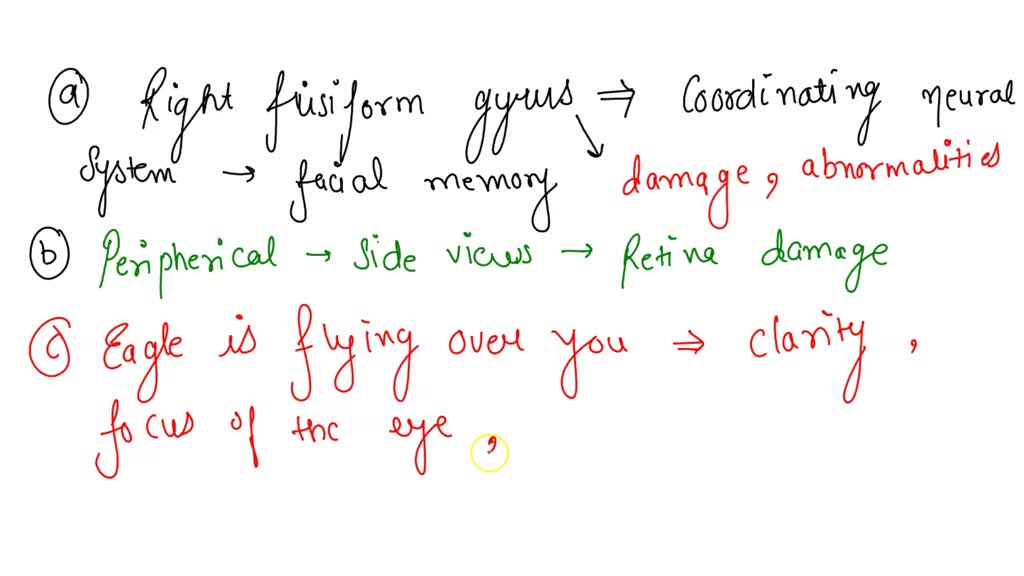 ⓐ Right fusiform gyrus ⇒ Coordinating neural
System → facial memory ↘ damage, abnormalities
ⓑ Peripherical → Side views → Retina damage
ⓒ Eagle is flying over you ⇒ clarity,
focus of the eye,